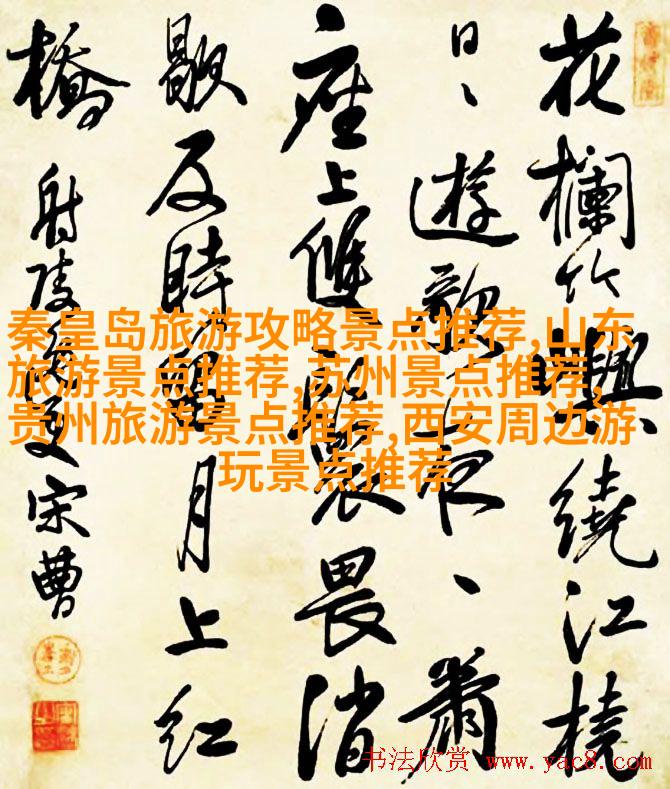 花欄竹嶼繞江橈
日、遊歌夜、簫
座上雙畏消
歇反時月上红
橋
射陵叟宋曹
秦皇岛旅游攻略景点推荐,山东
旅游景点推荐,苏州景点推荐,
贵州旅游景点推荐,西安周边游
玩景点推荐
书法欣赏 www.yac8.com